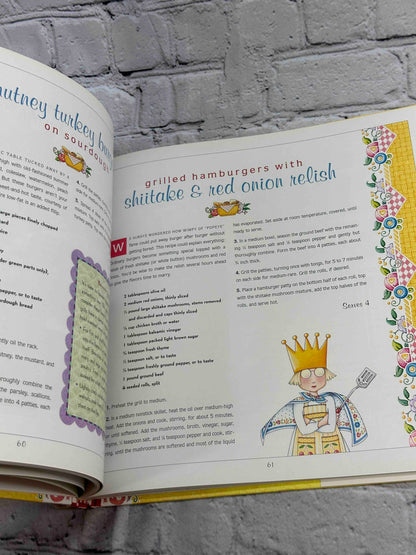 hutney turkey bur
on sourdough
C TABLE TUCKED AWAY BY A
high with old-fashioned summer
d, coleslaw, watermelon, sweet
But these burgers stent your
weet-and-sour taste, courtesy of
re low-fat is an added treat.
large pieces finely chopped
ey
(or green parts only),
red
per, or to taste
rdough bread
ghtly oil the rack.
ney, the mustard, and
oroughly combine the
the parsley, scallions,
e into 4 patties, each
60
grilled hamburgers with
shiitake & red onion relish
WE ALWAYS WONDERED HOW WIMPY OF "POPEYE"
fame could put away burger after burger without
getting bored. This recipe could explain everything:
rdinary burgers become something special topped with a
relish of fresh shiitake (or white button) mushrooms and red
onion. You'd be wise to make the relish several hours ahead
to give the flavors time to marry.
2 tablespoons olive oil
2 medium red onions, thinly sliced
½ pound large shiitake mushrooms, stems removed
and discarded and caps thinly sliced
¼ cup chicken broth or water
1 tablespoon balsamic vinegar
1 tablespoon packed light brown sugar
½ teaspoon fresh thyme
½ teaspoon salt, or to taste
½ teaspoon freshly ground pepper, or to taste
1 pound ground beef
4 seeded rolls, split
1. Preheat the grill to medium.
2. In a medium nonstick skillet, heat the oil over medium-high
heat. Add the onions and cook, stirring, for about 5 minutes,
or until softened. Add the mushrooms, broth, vinegar, sugar,
thyme, ¼ teaspoon salt, and ¼ teaspoon pepper and cook, stir-
ring, until the mushrooms are softened and most of the liquid
has evaporated. Set aside at room temperature, covered, until
ready to serve.
3. In a medium bowl, season the ground beef with the remain-
ing ¼ teaspoon salt and ¼ teaspoon pepper and gently but
thoroughly combine. Form the beef into 4 patties, each about
¾ inch thick.
4. Grill the patties, turning once with tongs, for 5 to 7 minutes
on each side for medium. Grill the rolls, if desired.
5. Place a hamburger patty on the bottom half of each roll, top
with the shiitake mushroom mixture, add the top halves of the
rolls, and serve hot.
Serves 4
61